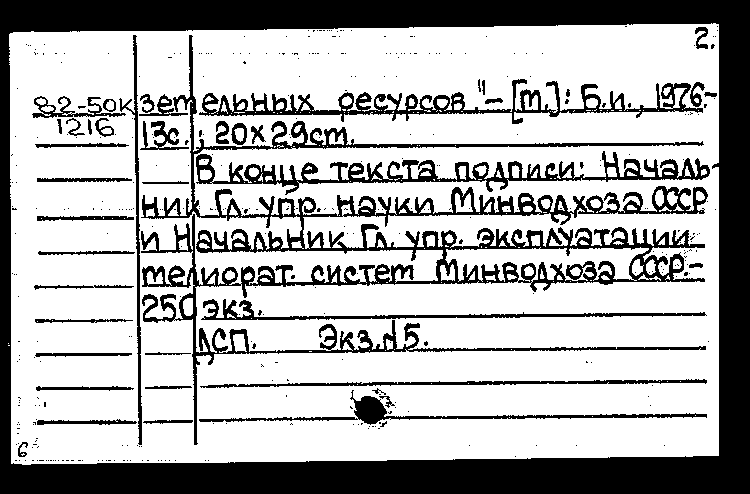 2.
82-50к земельных ресурсов."– [М.]: Б.и., 1976.-
1216 13с.; 20×29см.
В конце текста подписи: Началь-
ник Гл. упр. науки Минводхоза СССР
и Начальник Гл. упр. эксплуатации
мелиорат. систем Минводхоза СССР.–
250 экз.
ДСП. Экз.№5.
6